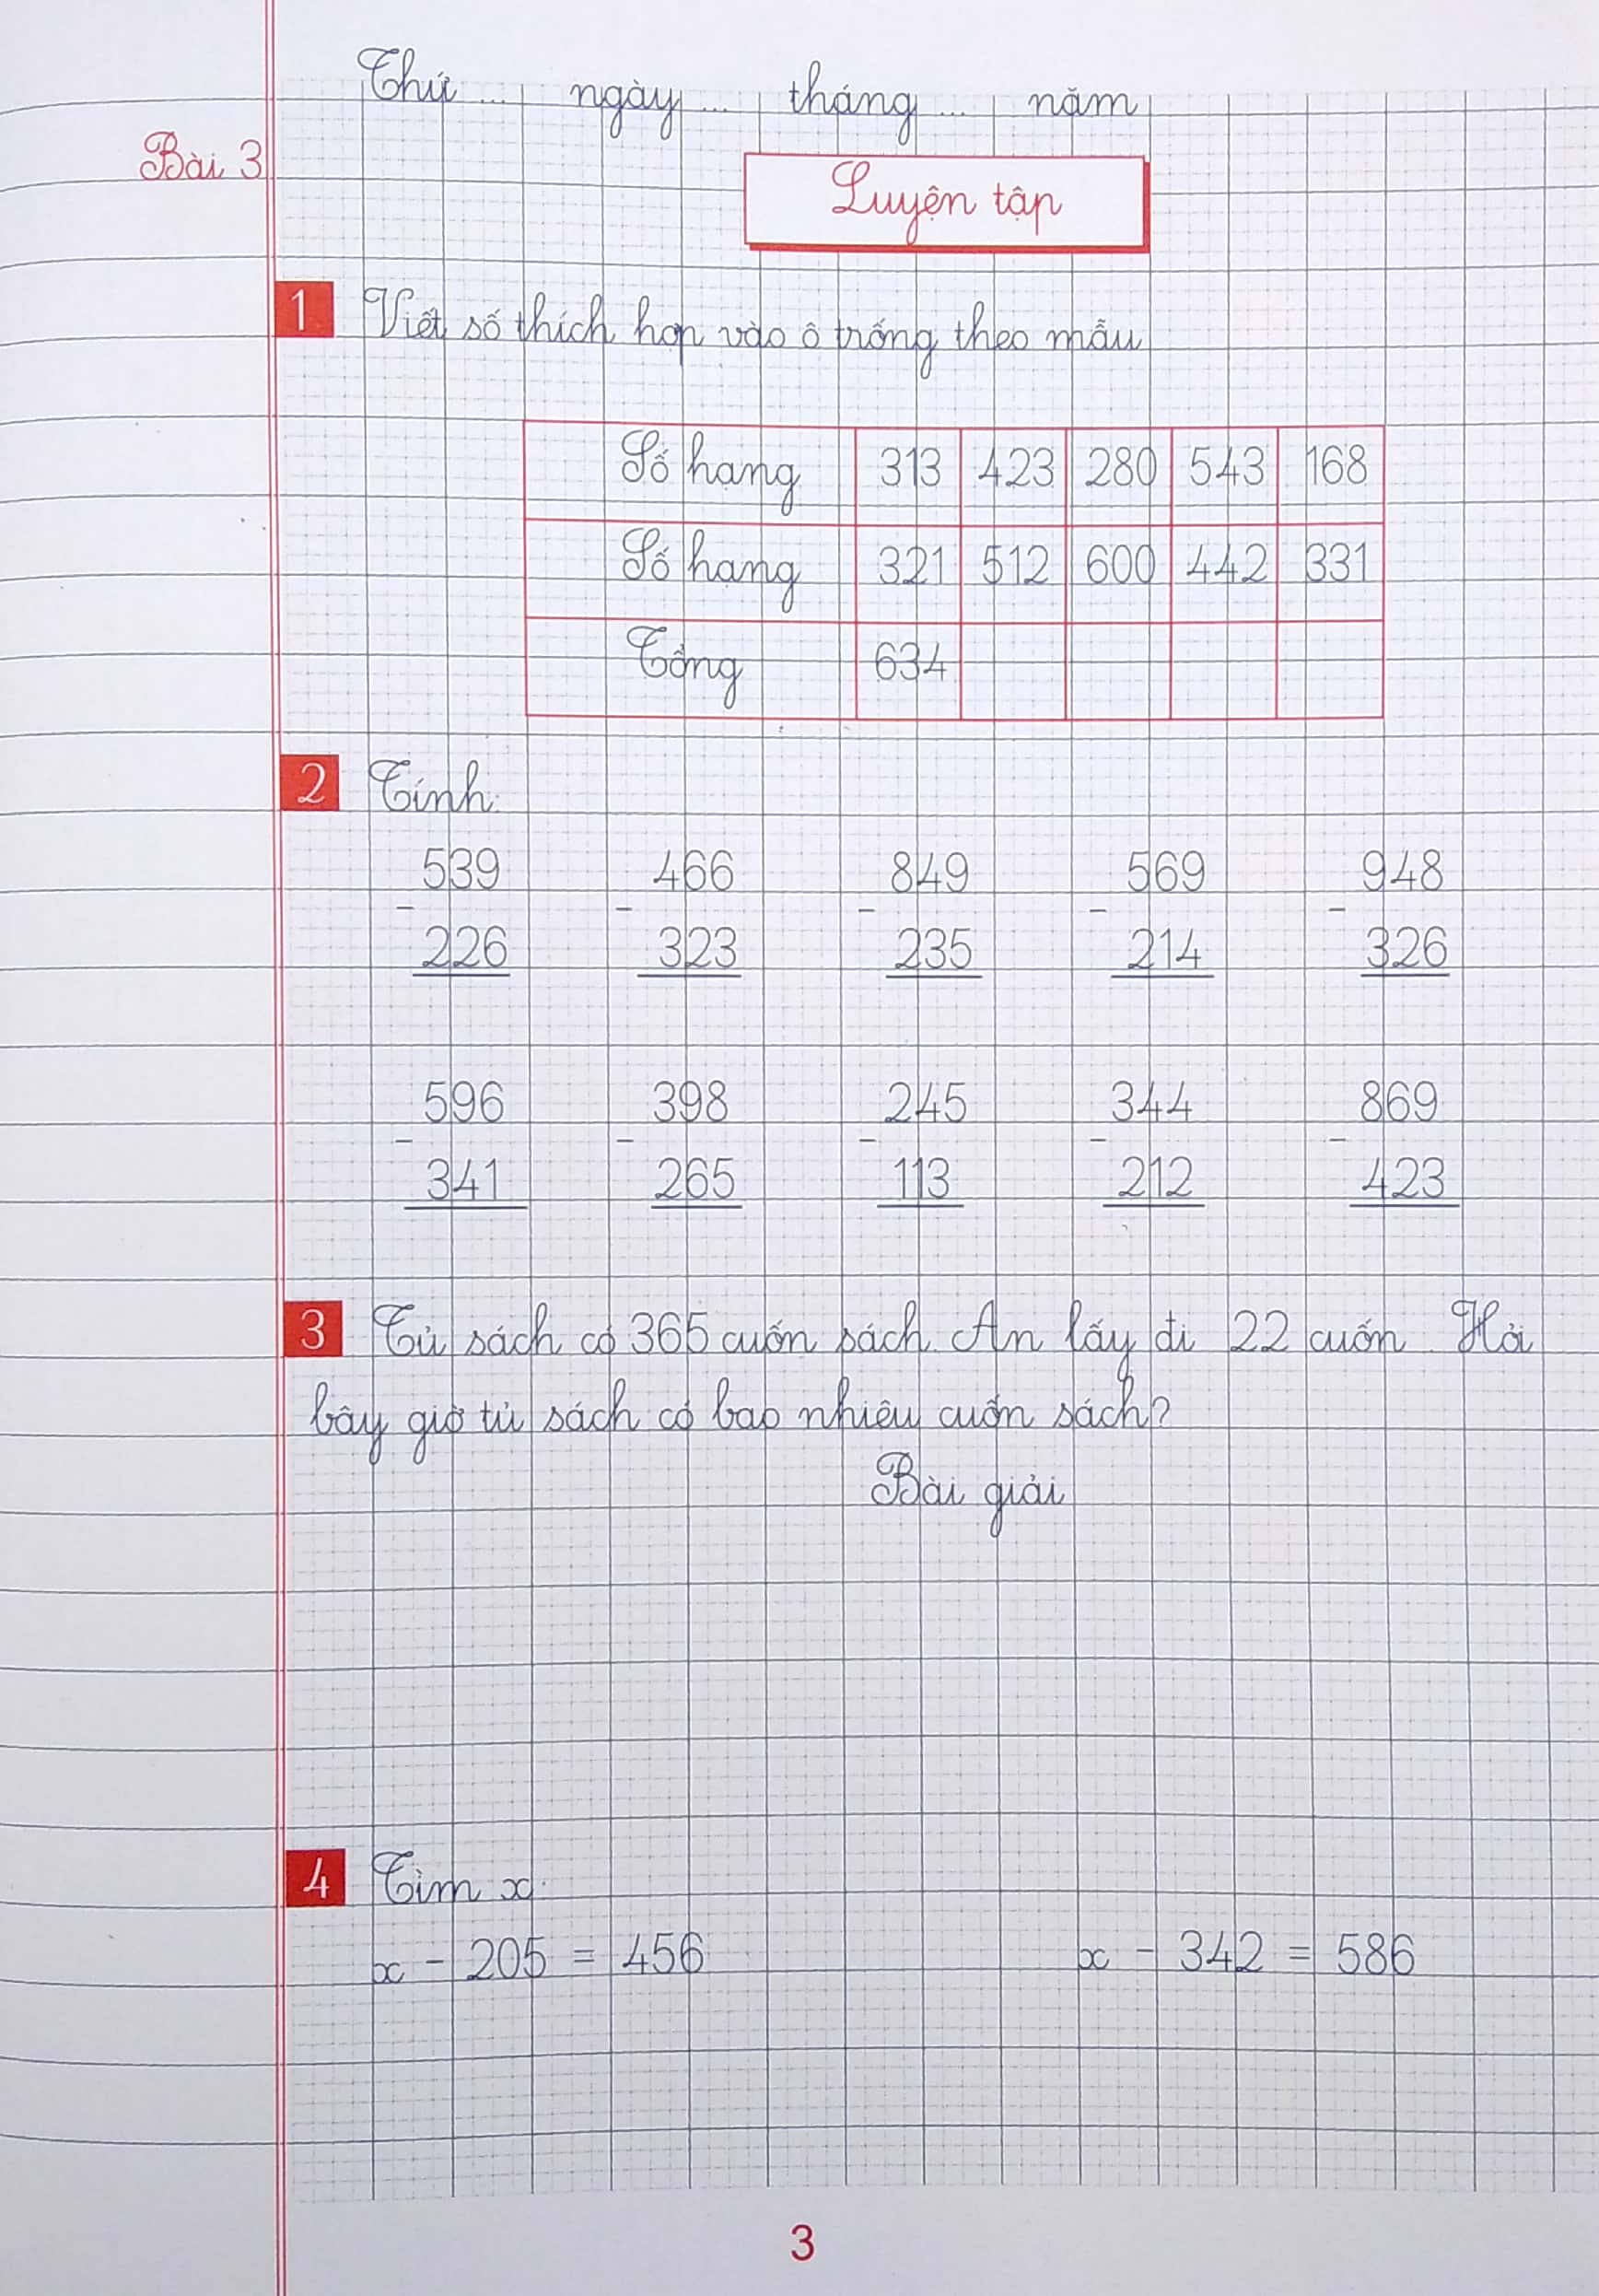 Thứ ... ngày ... tháng ... năm
Bài 3
Luyện tập
1 Viết số thích hợp vào ô trống theo mẫu
Số hạng 313 423 280 543 168
Số hạng 321 512 600 442 331
Tổng 634
2 Tính:
539 466 849 569 948
- - - - -
226 323 235 214 326
596 398 245 344 869
- - - - -
341 265 113 212 423
3 Tủ sách có 365 cuốn sách. An lấy đi 22 cuốn. Hỏi
bây giờ tủ sách có bao nhiêu cuốn sách?
Bài giải
4 Tìm x:
x - 205 = 456 x - 342 = 586
3